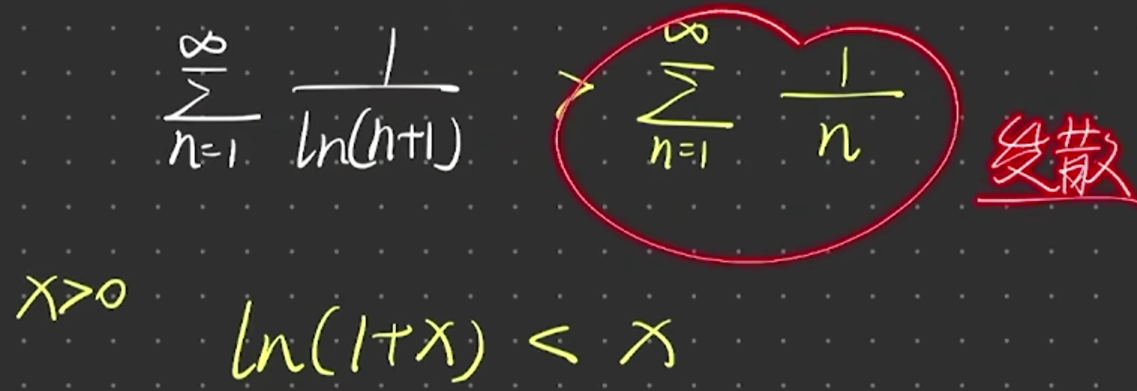 ∑_{n=1}^{∞} 1/ln(n+1) > ∑_{n=1}^{∞} 1/n 发散
x>0
ln(1+x) < x